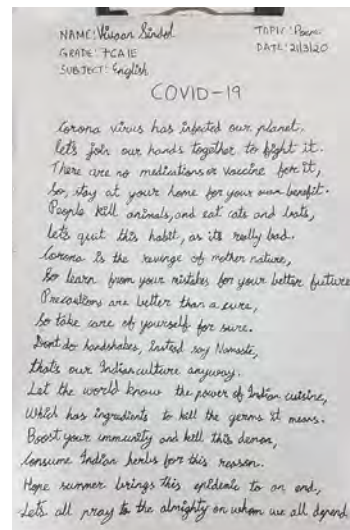 NAME: Vivaan Sindol
TOPIC: Poem
GRADE: 7CAIE
DATE: 21/3/20
SUBJECT: English
COVID-19
Corona virus has infected our planet.
let's join our hands together to fight it.
There are no medications or vaccine for it,
So, stay at your home for your own benefit.
People kill animals, and eat cats and bats,
let's quit this habit, as its really bad.
Corona is the revenge of mother nature,
So learn from your mistakes for your better future
Precautions are better than a cure,
So take care of yourself for sure.
Dont do handshakes, Insted say Namaste,
thats our Indian culture anyway.
Let the world know the power of Indian cuisine,
Which has ingredients to kill the germs it means.
Boost your immunity and kill this demon,
Consume Indian herbs for this reason.
Hope summer brings this epidemic to an end,
Lets all pray to the almighty on whom we all depend.